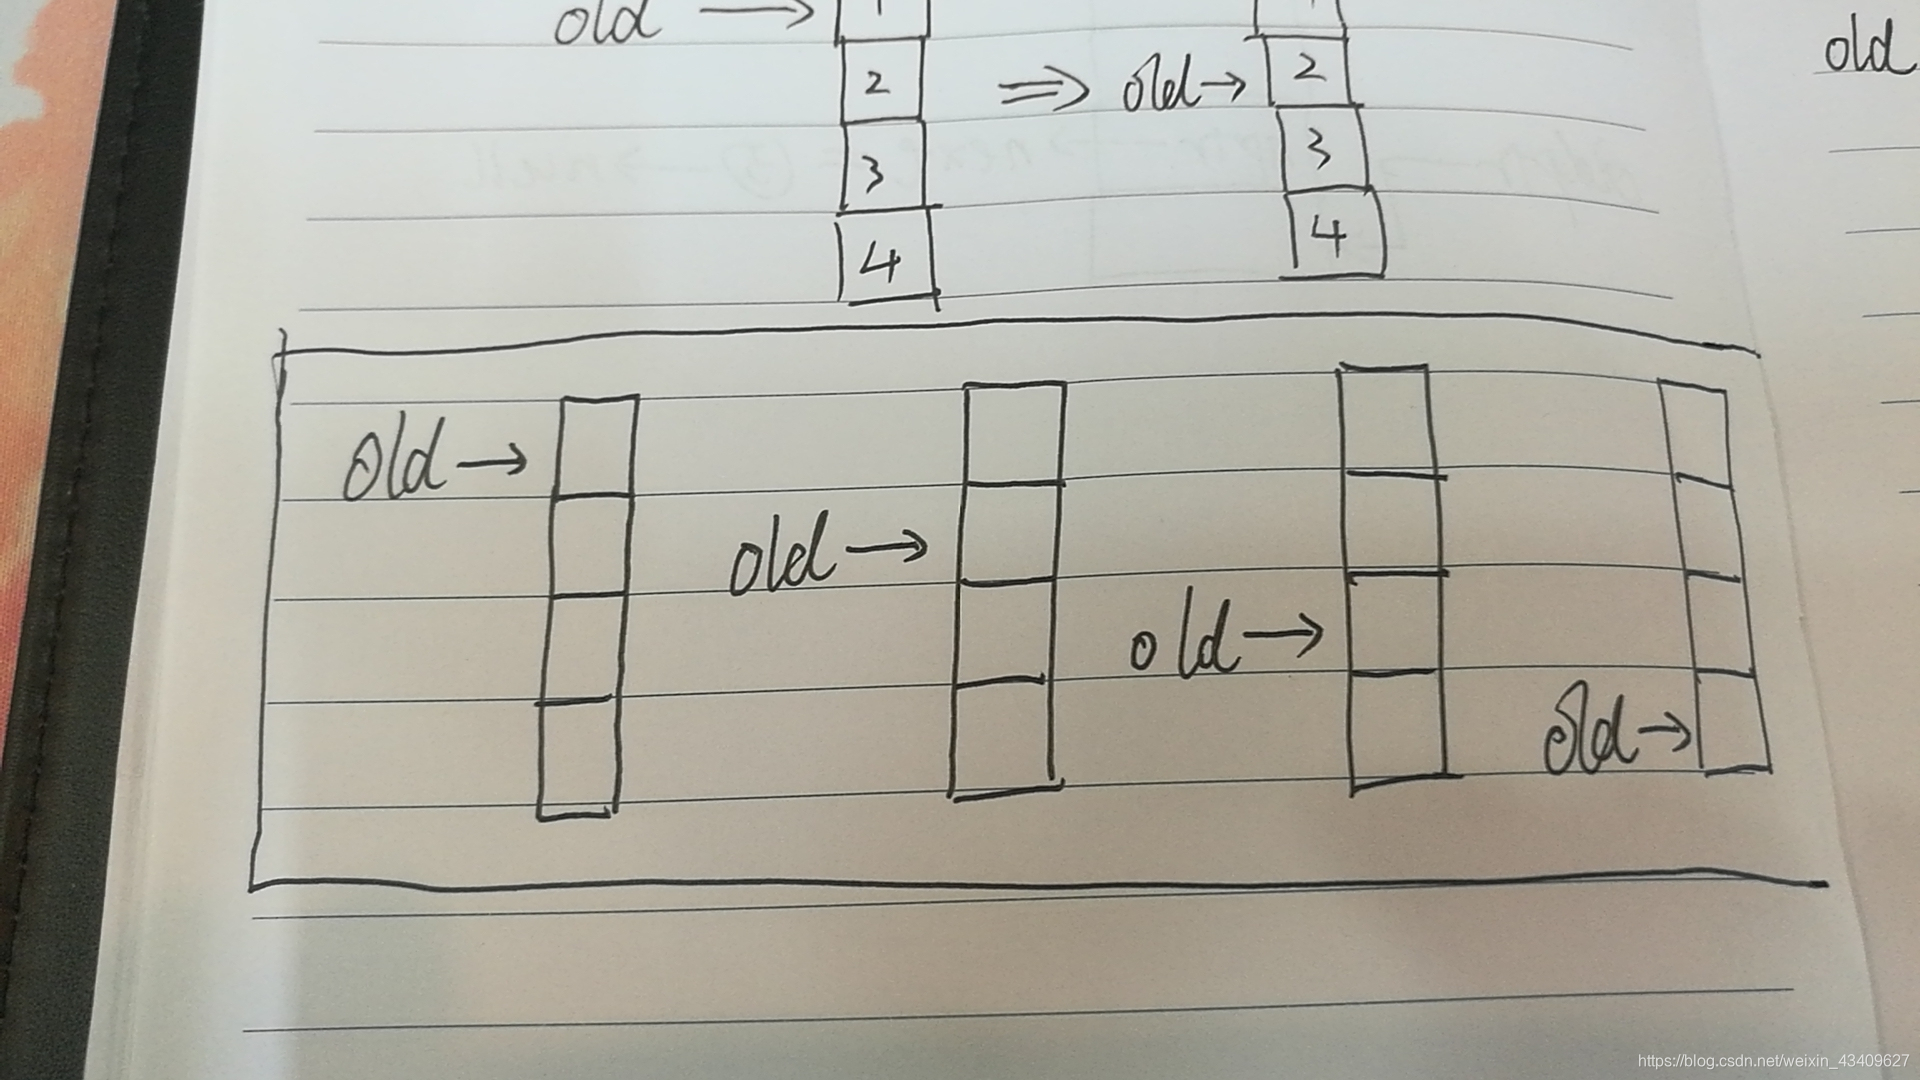 old → 1 1
2 ⇒ old → 2 old
3 3
4 4
old →
old →
old →
old →
https://blog.csdn.net/weixin_43409627